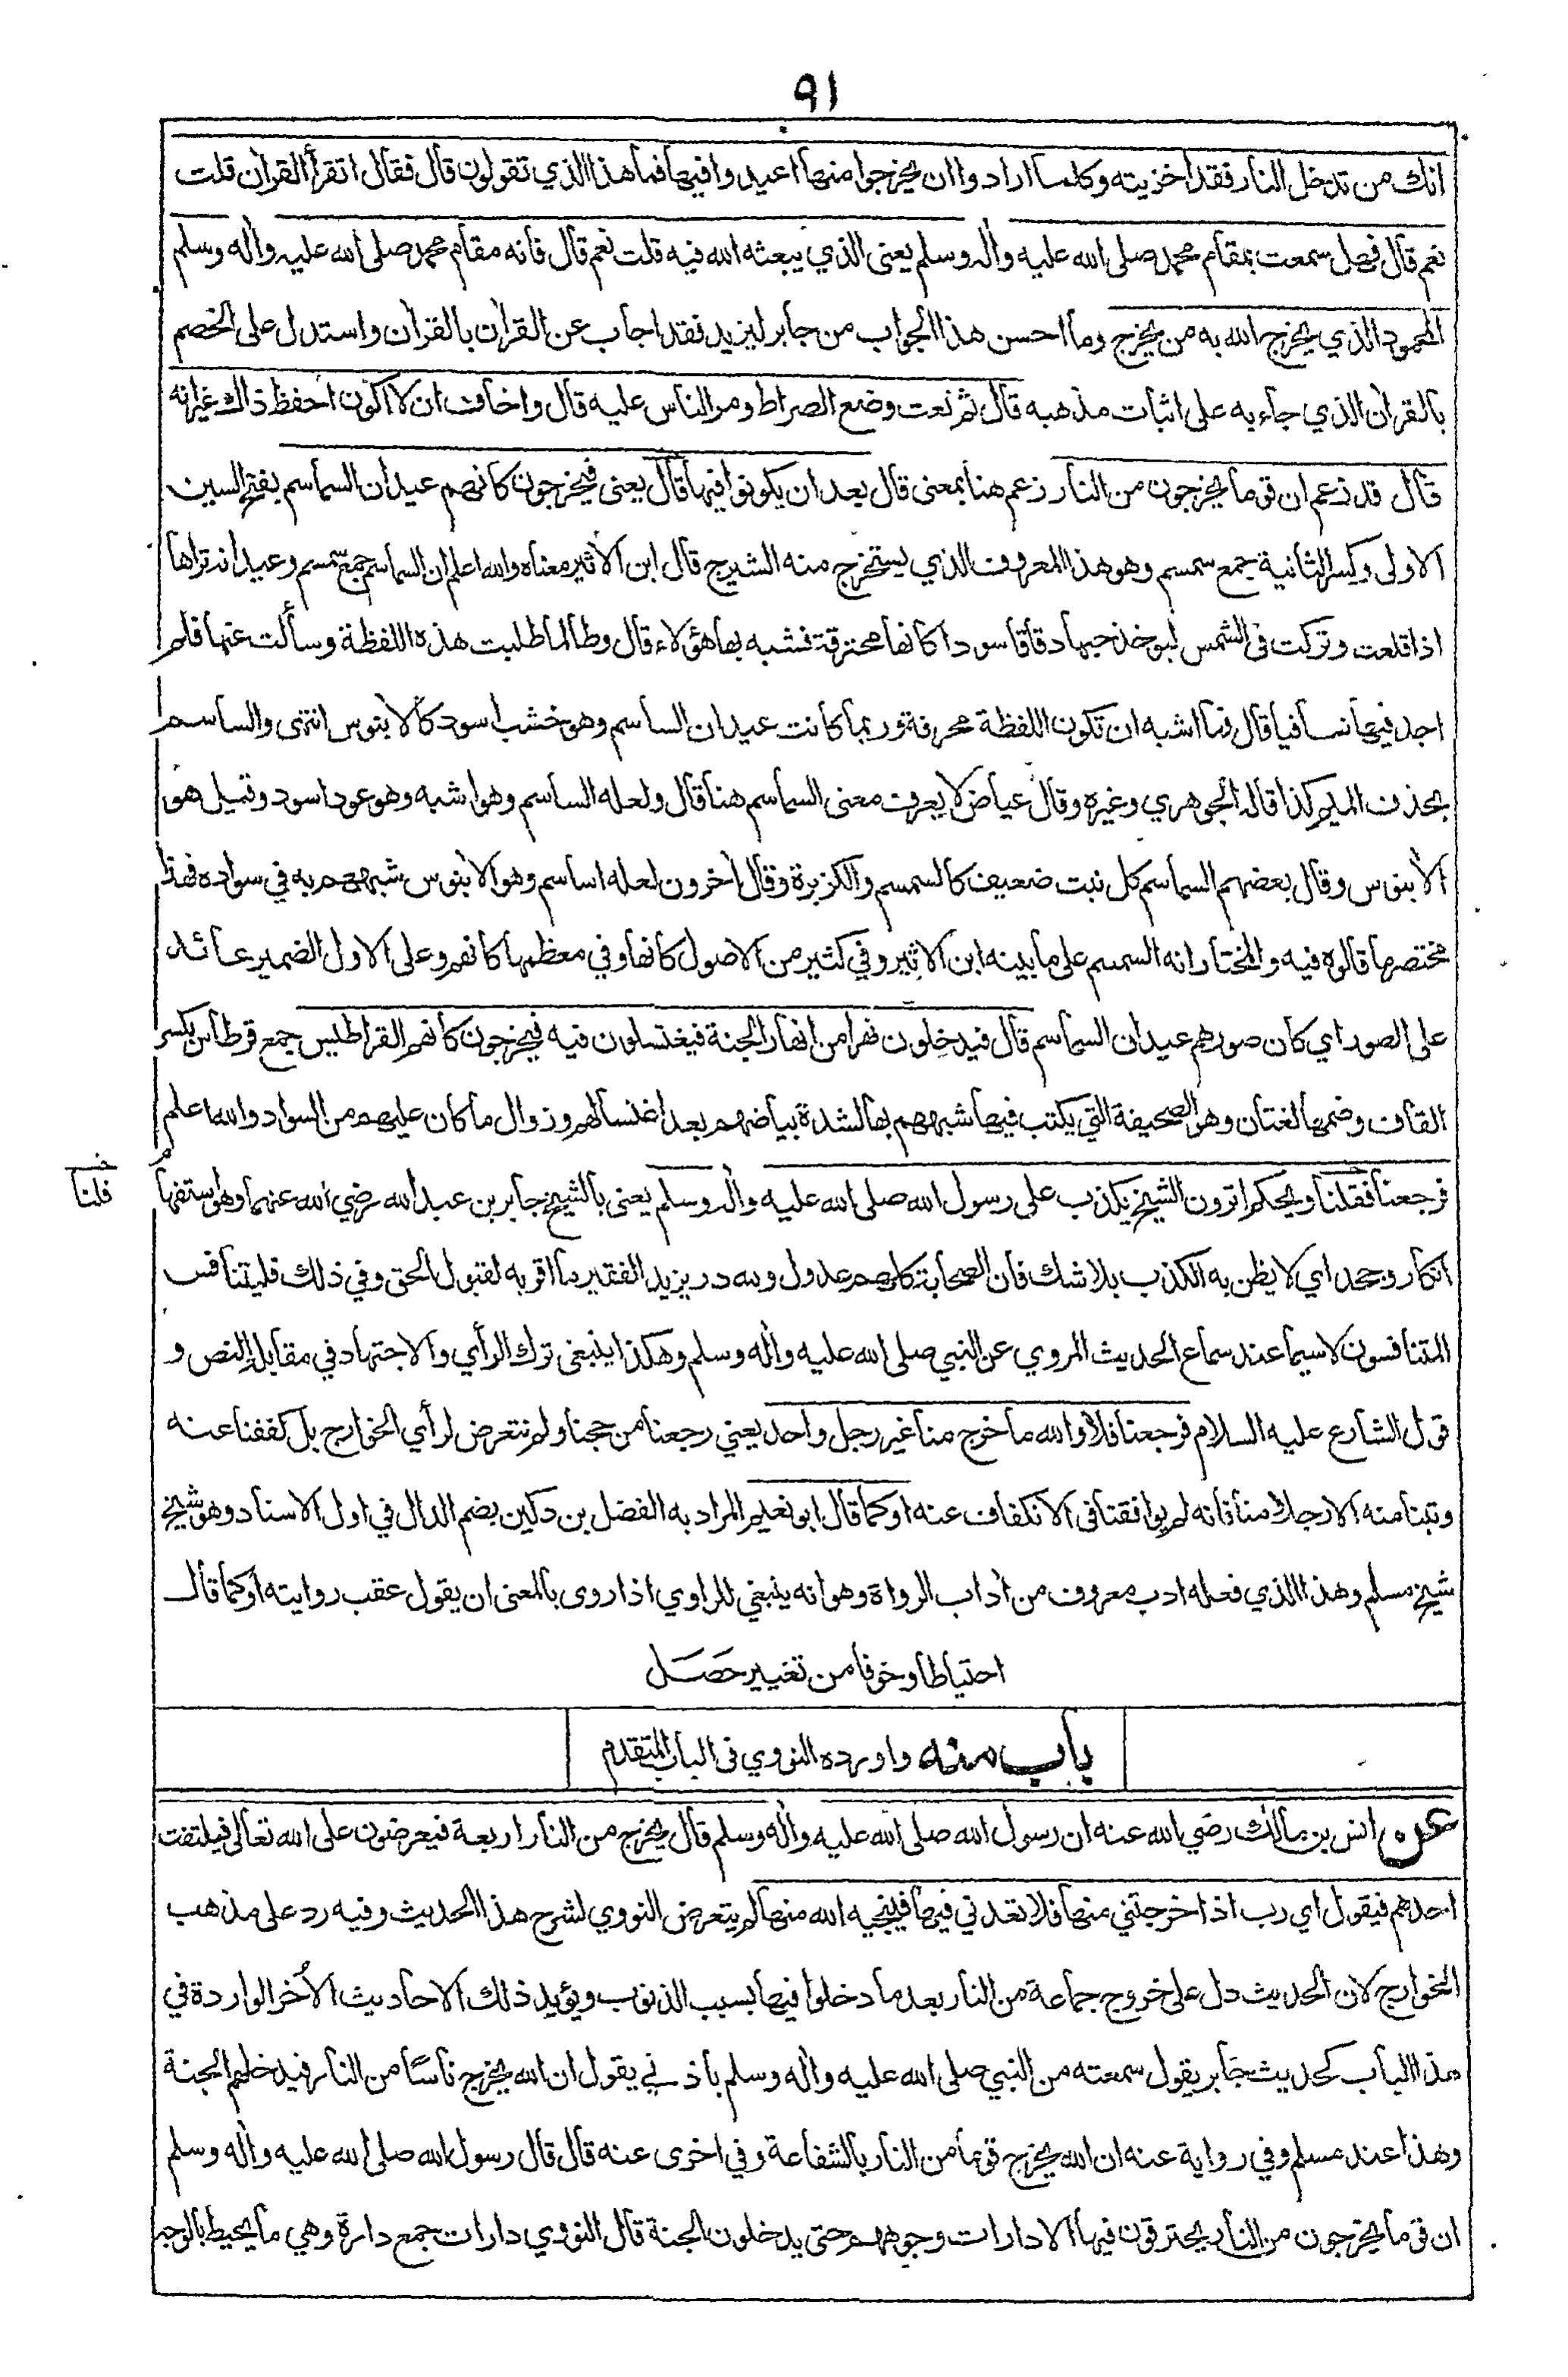 ٩١
انك من تدخل النار فقد اخزيته وكلما ارادوا ان يخرجوا منها اعيدوا فيها فما هذا الذي تقولون قال فقال اتقرأ القرأن قلت
نعم قال فهل سمعت بمقام محمد صلى الله عليه وأله وسلم يعنى الذي يبعثه الله فيه قلت نعم قال فانه مقام محمد صلى الله عليه وأله وسلم
المحمود الذي يخرج الله به من يخرج وما احسن هذا الجواب من جابر ليزيد فقد اجاب عن القرأن بالقرأن واستدل على الخصم
بالقرأن الذي جاء به على اثبات مذهبه قال ثم نعت وضع الصراط ومر الناس عليه قال واخاف ان لا اكون احفظ ذاك غير انه
قال قد زعم ان قوما يخرجون من النار زعم هنا بمعنى قال بعد ان يكونوا فيها قال يعنى فيخرجون كانهم عيدان السماسم بفتح السين
الاولى وكسر الثانية جمع سمسم وهو هذا المعروف الذي يستخرج منه الشيرج قال ابن الأثير معناه والله اعلم ان السماسم جمع سمسم وعيدانه تراها
اذا قلعت وتركت فى الشمس ليوخذ حبها دقاقا سودا كانها محترقة فشبه بها هؤلاء قال وطالما طلبت هذه اللفظة وسألت عنها فلم
اجد فيها شافيا قال وما اشبه ان تكون اللفظة محرفة وربما كانت عيدان الساسم وهو خشب اسود كالأبنوس انتهى والساسم
بحذف الميم كذا قاله الجوهري وغيره وقال عياض لا يعرف معنى السماسم هنا قال ولعله الساسم وهو اشبه وهو عود اسود وقيل هو
الأبنوس وقال بعضهم السماسم كل نبت ضعيف كالسمسم والكزبرة وقال أخرون لعله اساسم وهو الأبنوس شبههم به في سواده فهذا
مختصر ما قالوه فيه والمختار انه السمسم على ما بينه ابن الاثير وفي كثير من الاصول كانها وفي معظمها كانهم وعلى الاول الضمير عائد
على الصور اي كان صورهم عيدان السماسم قال فيدخلون نهرا من انهار الجنة فيغتسلون فيه فيخرجون كانهم القراطيس جمع قرطاس بكسر
القاف وضمها لغتان وهو الصحيفة التي يكتب فيها شبههم بها لشدة بياضهم بعد اغتسالهم وزوال ما كان عليهم من السواد والله اعلم
فرجعنا فقلنا ويحكم اترون الشيخ يكذب على رسول الله صلى الله عليه وأله وسلم يعنى بالشيخ جابر بن عبد الله رضي الله عنهما وهو استفهام
قلنا
انكار وجحد اي لا يظن به الكذب بلا شك فان الصحابة كلهم عدول ولله در يزيد الفقير ما اقربه لقبول الحق وفي ذلك فليتنافس
المتنافسون لاسيما عند سماع الحديث المروي عن النبي صلى الله عليه وأله وسلم وهكذا ينبغى ترك الرأي والاجتهاد في مقابلة النص و
قول الشارع عليه السلام فرجعنا فلا والله ما خرج منا غير رجل واحد يعني رجعنا من حجنا ولم نتعرض لرأي الخوارج بل كففنا عنه
وتبنا منه الا رجلا منا فانه لم يوافقنا فى الانكفاف عنه او كما قال ابو نعيم المراد به الفضل بن دكين بضم الدال في اول الاسناد وهو شيخ
شيخ مسلم وهذا الذي فعله ادب معروف من أداب الرواة وهو انه ينبغي للراوي اذا روى بالمعنى ان يقول عقب روايته او كما قال
احتياطا وخوفا من تغيير حَصَل
باب منه واورده النووي فى الباب المتقدم
عن انس بن مالك رضي الله عنه ان رسول الله صلى الله عليه وأله وسلم قال يخرج من النار اربعة فيعرضون على الله تعالى فيلتفت
احدهم فيقول اي رب اذ اخرجتني منها فلا تعدني فيها فينجيه الله منها لم يتعرض النووي لشرح هذا الحديث وفيه رد على مذهب
الخوارج لان الحديث دل على خروج جماعة من النار بعد ما دخلوا فيها بسبب الذنوب ويؤيد ذلك الاحاديث الأخر الواردة في
هذا الباب كحديث جابر يقول سمعته من النبي صلى الله عليه وأله وسلم باذني يقول ان الله يخرج ناسًا من النار فيدخلهم الجنة
وهذا عند مسلم وفي رواية عنه ان الله يخرج قوما من النار بالشفاعة وفي اخرى عنه قال قال رسول الله صلى الله عليه وأله وسلم
ان قوما يخرجون من النار يحترقون فيها الا دارات وجوههم حتى يدخلون الجنة قال النووي دارات جمع دارة وهي ما يحيط بالوجه